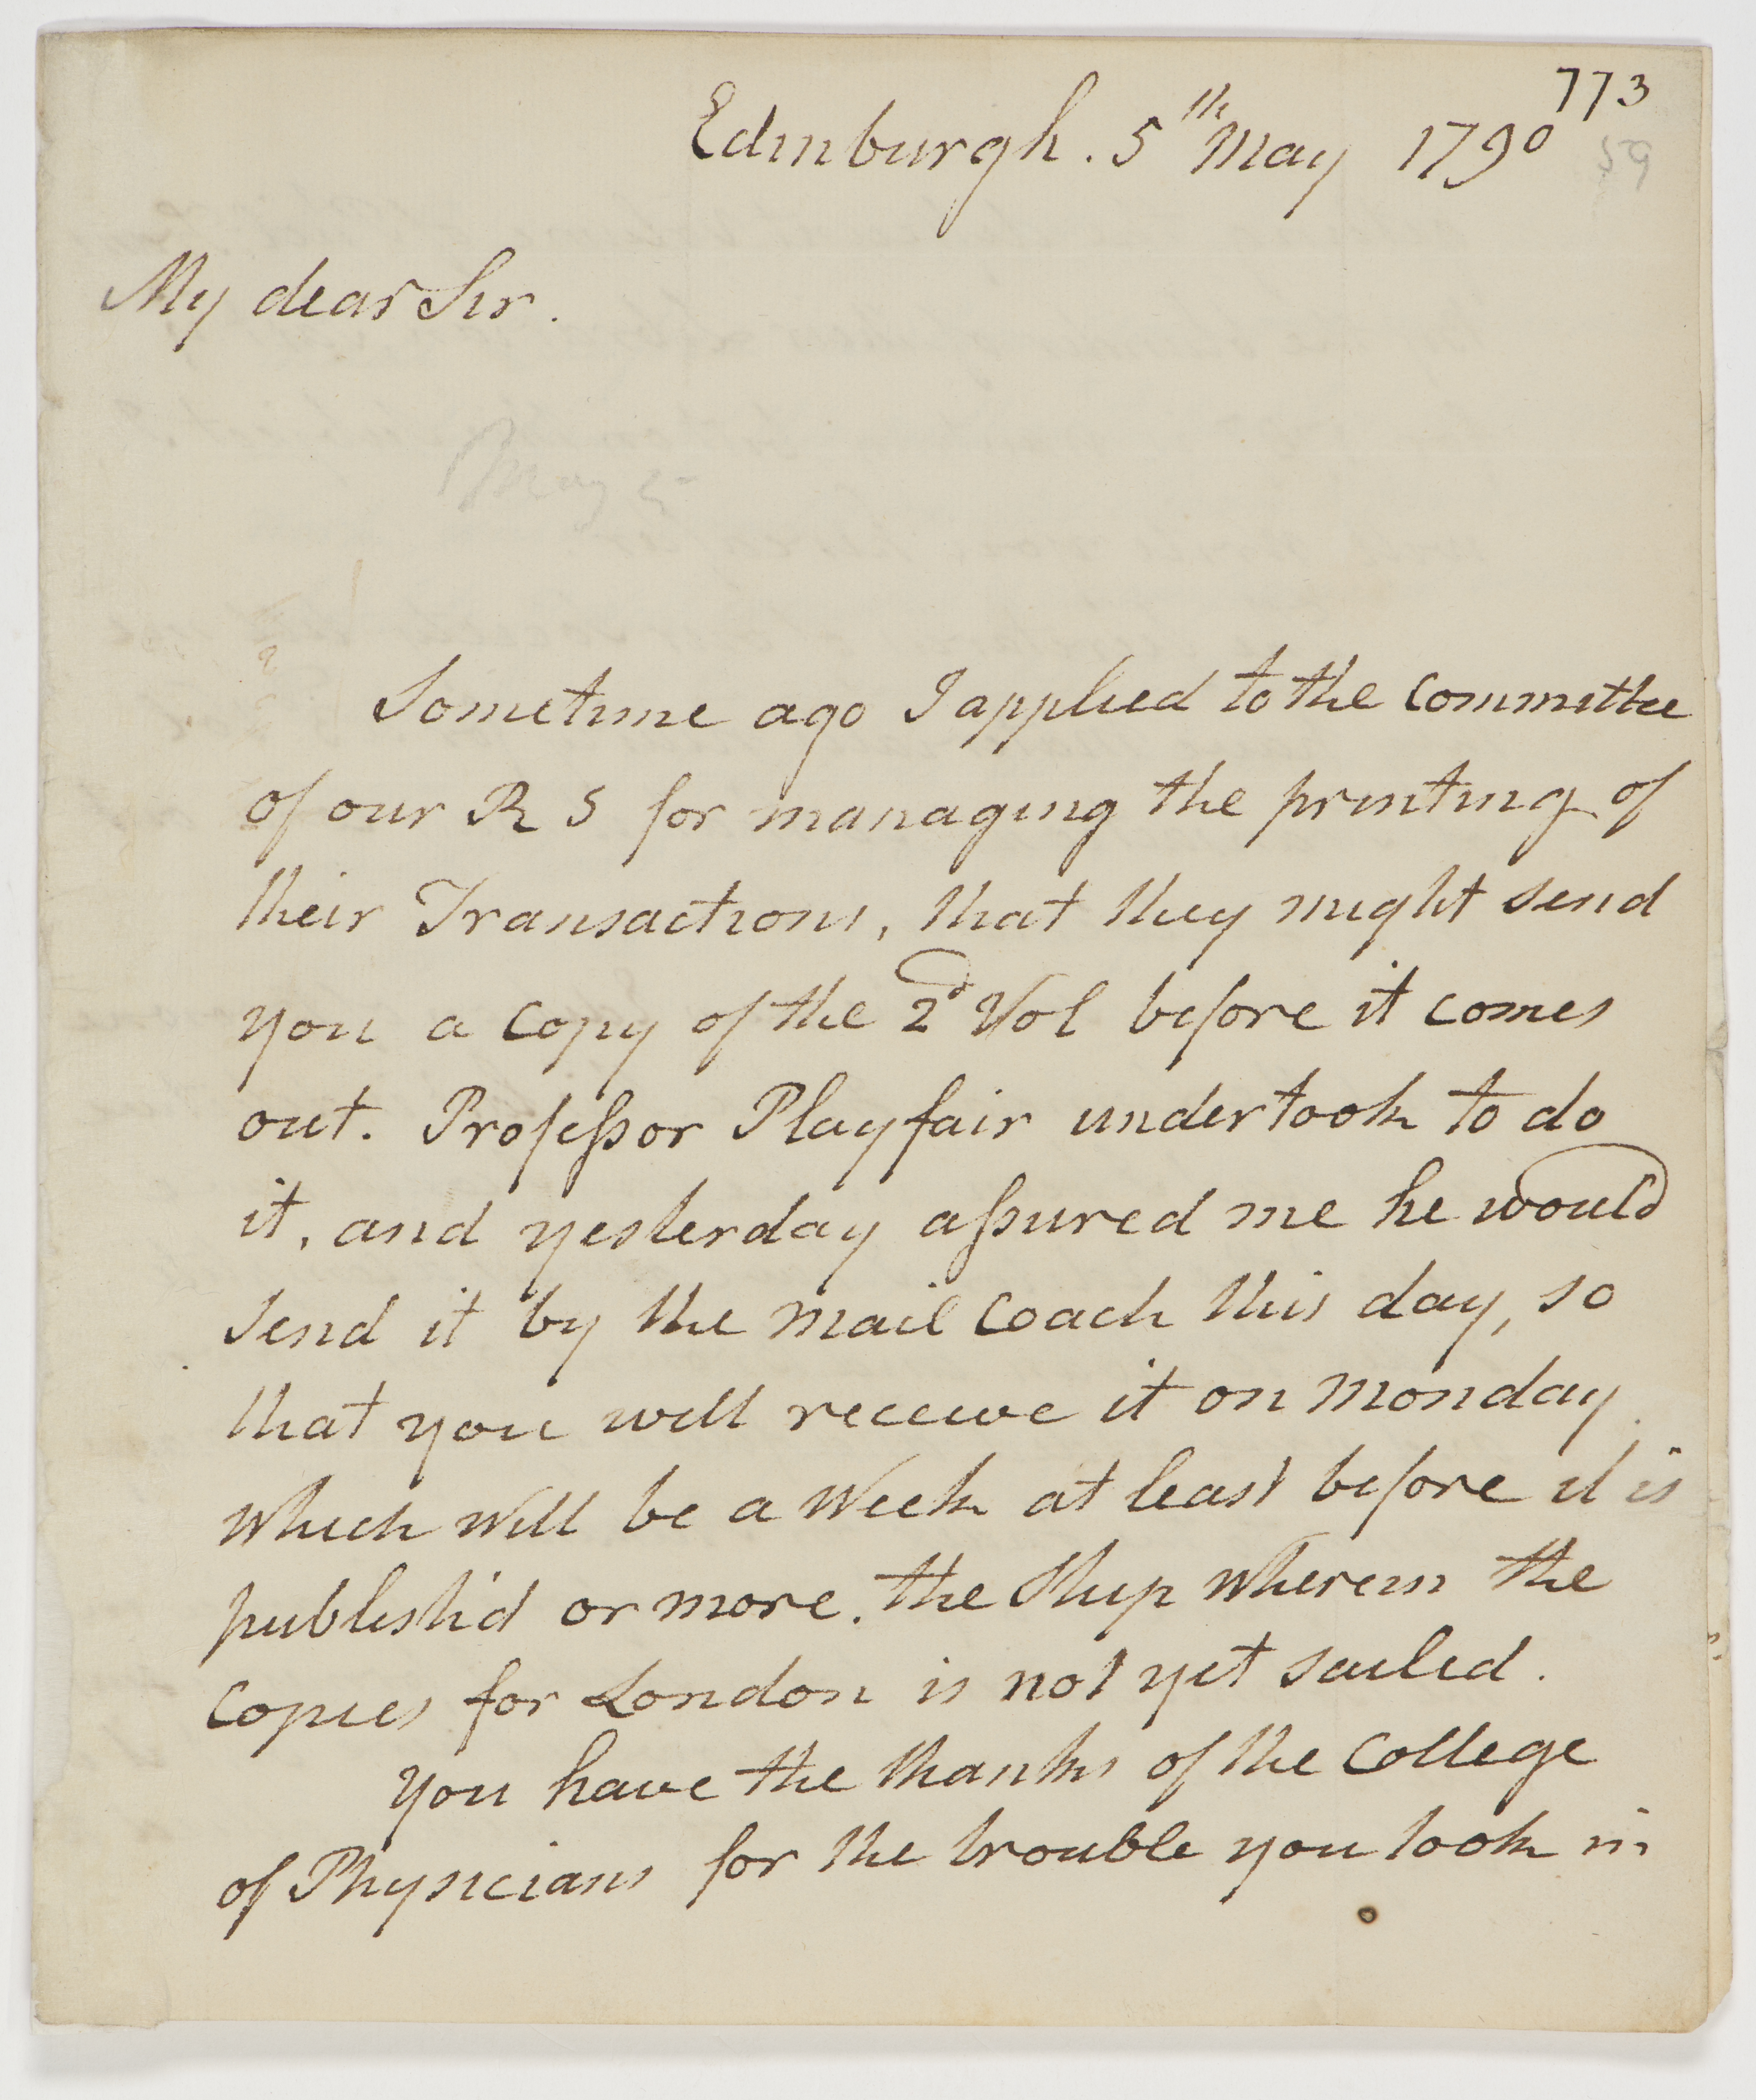 773
Edinburgh. 5th May 1790
59
My dear Sir.
May 5
Sometime ago I applied to the Committee
of our R S for managing the printing of
their Transactions, that they might send
you a Copy of the 2d Vol before it comes
out. Professor Playfair undertook to do
it, and yesterday assured me he would
send it by the Mail Coach this day, so
that you will receive it on Monday.
which will be a Week at least before it is
publish'd or more. The Ship wherein the
Copies for London is not yet sailed.
You have the thanks of the College
of Physicians for the trouble you took in